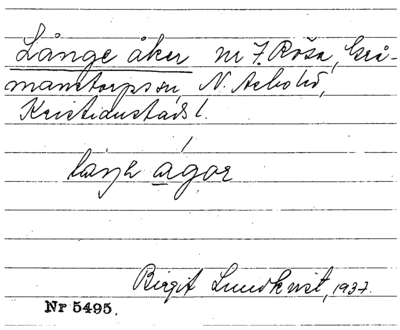 Långe åker nr 7. Röša, Grå-
manstorps sn, N. Åsbo hd,
Kristianstads l.
låŋe ágɔr
Birgit Lundkvist, 1937.
Nr 5495.